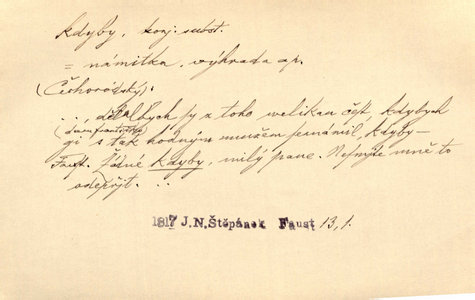 kdyby, konj. subst.
= námitka, výhrada ap.
(Čechorodský):
..., dělalbych sy z toho welikau čest, kdybych
gi s tak hodným mužem seznámil, kdyby—
Faust. Žádné kdyby, milý pane. Nesmjte mně to
odepřjt. ..
1817 J.N.Štěpánek Faust 13,1.